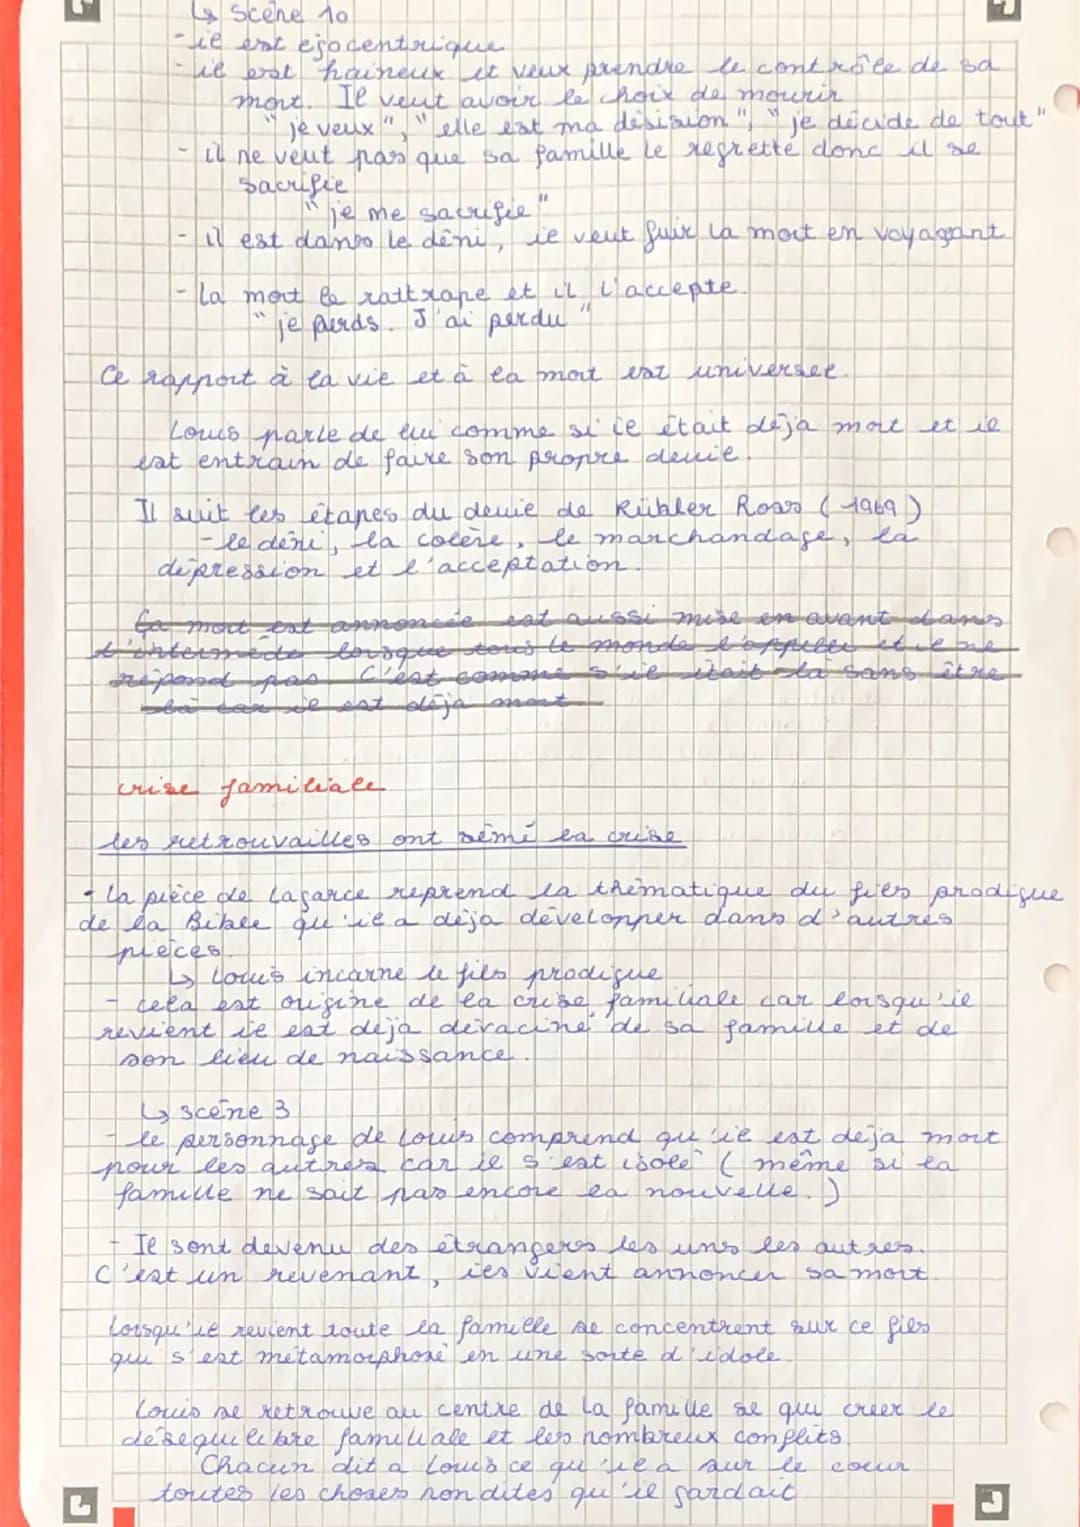 ↳ Scène 10
- il est egocentrique
- il est haineux et veux prendre le contrôle de sa
mort. Il veut avoir le choix de mourir
"je veux", "elle est ma désision", "je décide de tout"
- il ne veut pas que sa famille le regrette donc il se
sacrifie
"je me sacrifie"
- il est dans le déni, il veut fuir la mort en voyageant
- la mort le rattrape et il l'accepte.
"je perds. J'ai perdu"
Ce rapport à la vie et à la mort est universel.
Louis parle de lui comme si ce était déjà mort et il
est entrain de faire son propre deuie.
Il suit les étapes du deuie de Kübler Ross (1969)
- le déni, la colère, le marchandage, la
dépression et l'acceptation.
Ça mort est annoncée est aussi mise en avant dans
l'intermède lorsque tous le monde l'appelle et il ne
répond pas. C'est comme s'il était là sans être
là car il est déjà mort.
crise familiale
les retrouvailles ont sémé la crise
- la pièce de Lagarce reprend la thématique du fils prodigue
de la Bible qu'il a déja développer dans d'autres
pièces.
↳ Louis incarne le fils prodigue
- cela est origine de la crise familiale car lorsqu'il
revient il est déja déraciné de sa famille et de
son lieu de naissance.
↳ scène 3
- le personnage de Louis comprend qu'il est déja mort
pour les autres car il s'est isolé (même si la
famille ne sait pas encore la nouvelle.)
- Il sont devenu des étrangers les uns les autres.
C'est un revenant, ils vient annoncer sa mort.
Lorsqu'il revient toute la famille se concentrent sur ce fils
qui s'est métamorphosé en une sorte d'idole.
Louis se retrouve au centre de la famille se qui creer le
déséquilibre familiale et les nombreux conflits.
Chacun dit a Louis ce qu'il a sur le coeur
toutes les choses non dites qu'il gardait